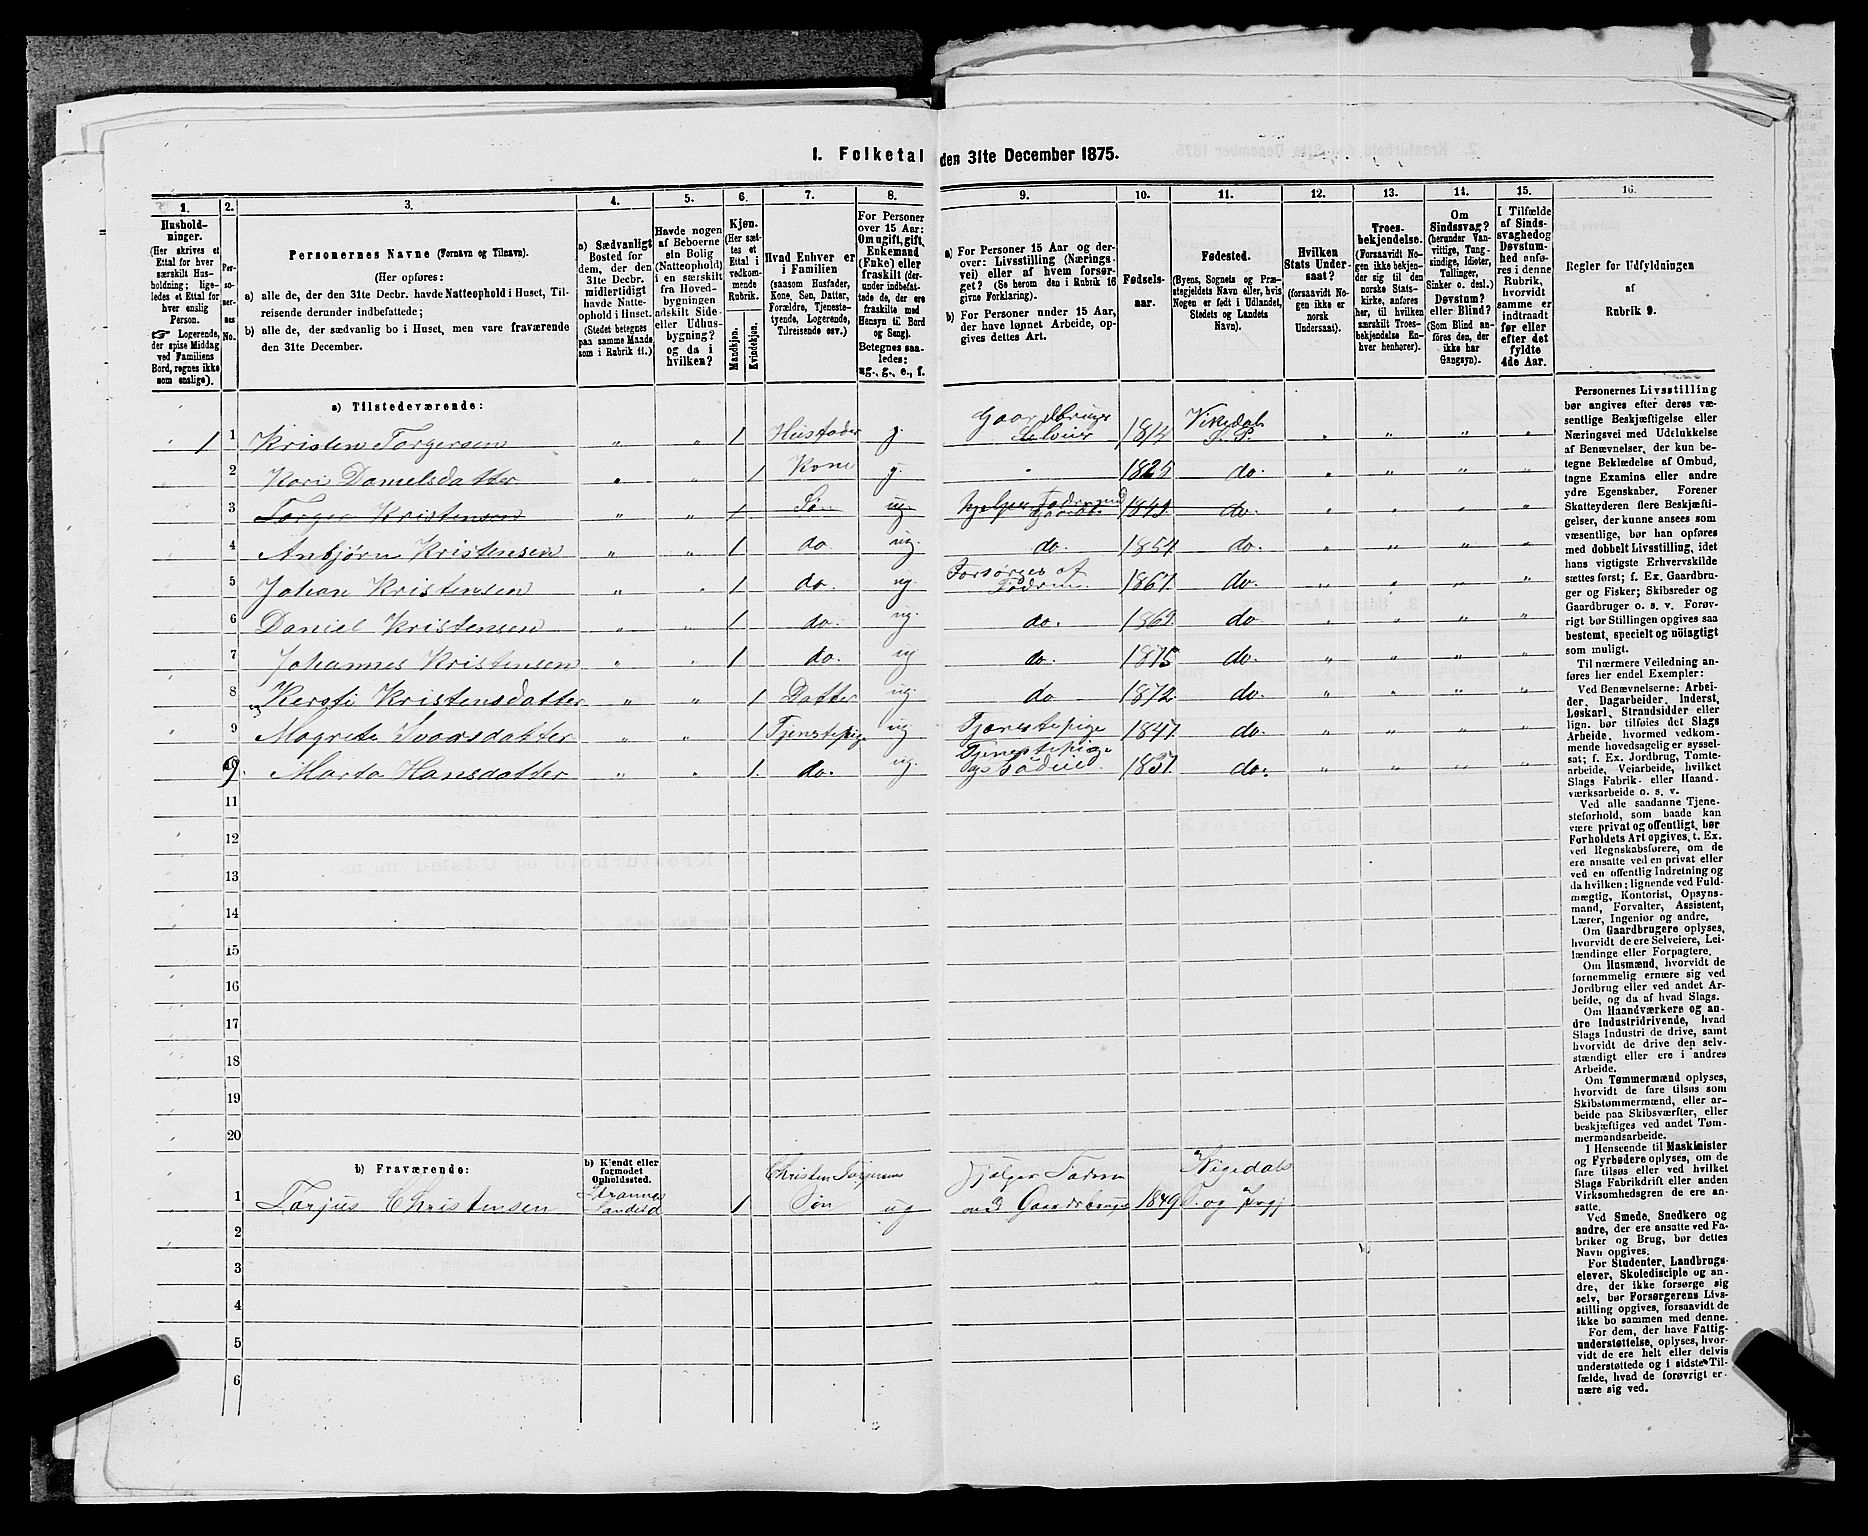 I. Folketal den 31te December 1875.
1. 2. 3. 4. 5. 6. 7. 8. 9. 10. 11. 12. 13. 14. 15. 16.
Hushold-
ninger.
(Her skrives et
Ettal for hver
særskilt Hus-
holdning; lige-
ledes et Ettal for
hver enslig
Person.
☞ Logerende,
der spise Middag
ved Familiens
Bord, regnes ikke
som enslige).
Per-
so-
ner-
nes
No.
Personernes Navne (Fornavn og Tilnavn).
(Her opføres:
a) alle de, der den 31te Decbr. havde Natteophold i Huset, Til-
reisende derunder indbefattede;
b) alle de, der sædvanlig bo i Huset, men vare fraværende
den 31te December.
a) Sædvanligt
Bosted for
dem, der den
31te Decbr.
midlertidigt
havde Natte-
ophold i Huset.
(Stedet betegnes
paa samme Maade
som i Rubrik 11.)
Havde nogen
af Beboerne
sin Bolig
(Natteophold)
i en særskilt
fra Hoved-
bygningen
adskilt Side-
eller Udhus-
bygning?
og da i
hvilken?
Kjøn.
(Her sæt-
tes et
Ettal i
vedkom-
mende
Rubrik.
Mandkjøn.
Kvindekjøn.
Hvad Enhver er
i Familien
(saasom Husfader,
Kone, Søn, Datter,
Forældre, Tjeneste-
tyende, Logerende,
Tilreisende osv.)
For Personer
over 15 Aar:
Om ugift, gift,
Enkemand
(Enke) eller
fraskilt (der-
under indbefat-
tede de, der ere
fraskilte med
Hensyn til Bord
og Seng).
Betegnes saa-
ledes:
ug., g., e., f.
a) For Personer 15 Aar og der-
over: Livsstilling (Nærings-
vei) eller af hvem forsør-
get? (Se herom den i Rubrik 16
givne Forklaring).
b) For Personer under 15 Aar,
der have lønnet Arbeide, op-
gives dettes Art.
Fødsels-
aar.
Fødested.
(Byens, Sognets og Præ-
stegjeldets Navn eller, hvis
Nogen er født i Udlandet,
Stedets og Landets
Navn).
Hvilken
Stats Under-
saat?
(forsaavidt No-
gen ikke er
norsk
Undersaat).
Troes-
bekjendelse.
(Forsaavidt No-
gen ikke bekjen-
der sig til den
norske Stats-
kirke, anføres
her, til hvilken
særskilt Troes-
bekjendelse En-
hver henhører).
Om
Sindssvag?
(herunder Van-
vittige, Tung-
sindige, Idioter,
Tullinger,
Sinker o. desl.)
Døvstum?
eller Blind?
(Som Blind an-
føres den, der
ikke har
Gangsyn).
I Tilfælde
af Sinds-
svaghed og
Døvstum-
hed anfø-
res i denne
Rubrik,
hvorvidt
samme er
indtraadt
før eller
efter det
fyldte
4de Aar.
Regler for Udfyldningen
af
Rubrik 9.
a) Tilstedeværende:
1 1 Kristen Torgersen " " 1 Husfader g. Gaardbruger Selveier 1812 Vikedal S. P. " " " "
2 Kari Danielsdatter " " 1 Kone g. " 1825 do. " " " "
3 Torger Kristensen " " 1 Søn ug. do. " " " "
4 Anbjørn Kristensen " " 1 do ug. do. 1854 do. " " " "
5 Johan Kristensen " " 1 do. ug. Forsørges af 1867 do. " " " "
6 Daniel Kristensen " " 1 do. ug. do. 1869 do. " " " "
7 Johannes Kristensen " " 1 do. ug do. 1875 do. " " " "
8 Kersti Kristensdatter " " 1 Datter ug. do 1872 do. " " " "
9 Magrete Ivarsdatter " " 1 Tjenstepige ug Tjænestepige 1847 do. " " " "
10 Marta Hansdatter " " 1 do. ug. Tjenestepige do. " " " "
11
12
13
14
15
16
17
18
19
20
b) Fraværende:
b) Kjendt eller
formodet
Opholdssted.
1 Tarjus Christensen Sandeid 1 Christen Torgersens Søn ug Hjælper Faderen med Gaardsbruget 1849 Vigedals S. og Prgj.
2
3
4
5
6
Personernes Livsstilling
bør angives efter deres væ-
sentlige Beskjæftigelse eller
Næringsvei med Udelukkelse
af Benævnelser, der kun be-
tegne Beklædelse af Ombud,
tagne Examina eller andre
ydre Egenskaber. Forener
Skatteyderen flere Beskjæfti-
gelser, der kunne ansees som
væsentlige, bør han opføres
med dobbelt Livsstilling, idet
hans vigtigste Erhvervskilde
sættes først; f. Ex. Gaardbru-
ger og Fisker; Skibsreder og
Gaardbruger o. s. v. Forøv-
rigt bør Stillingen opgives saa
bestemt, specielt og nöiagtigt
som muligt.
Til nærmere Veiledning an-
føres her endel Exempler:
Ved Benævnelserne: Arbei-
der, Dagarbeider, Inderst,
Løskarl, Strandsidder eller
lign. bør tilføies det Slags
Arbeide, hvormed vedkom-
mende hovedsagelig er syssel-
sat; f. Ex. Jordbrug, Tomte-
arbeide, Veiarbeide, hvilket
Slags Fabrik- eller Haand-
værksarbeide o. s. v.
Ved alle saadanne Tjene-
steforhold, som baade kan
være privat og offentligt, bør
Forholdets Art opgives, t. Ex.
ved Regnskabsførere, om de
ere ansatte ved en privat eller
ved en offentlig Indretning og
da hvilken; lignende ved Fuld-
mægtig, Kontorist, Opsyns-
mand, Forvalter, Assistent,
Lærer, Ingeniør og andre.
Om Gaardbrugere oplyses,
hvorvidt de ere Selveiere, Lei-
lændinge eller Forpagtere.
Om Husmænd, hvorvidt de
fornemmelig ernære sig ved
Jordbrug eller ved andet Ar-
beide, og da af hvad Slags.
Om Haandværkere og an-
dre Industridrivende, hvad
Slags Industri de drive, samt
hvorvidt de drive den selv-
stændigt eller ere i andres
Arbeide.
Om Tømmermænd oplyses,
hvorvidt de fare tilsøs som
Skibstømmermænd, eller ar-
beide paa Skibsværfter, eller
beskjæftiges ved andet Tøm-
mermandsarbeide.
I Henseende til Maskinister
og Fyrbødere oplyses, om de
fare tilsøs eller ved hvilket
Slags Fabrikdrift eller anden
Virksomhedsgren de ere an-
satte.
Ved Smede, Snedkere og
andre, der ere ansatte ved Fa-
briker og Brug, bør dettes
Navn opgives.
For Studenter, Landbrugs-
elever, Skoledisciple og an-
dre, der ikke forsørge sig
selv, bør Forsørgerens Livs-
stilling opgives, forsaavidt de
ikke bo sammen med denne.
For dem, der have Fattig-
understøttelse, oplyses, hvor-
vidt de ere helt eller delvis
understøttede og i sidste Til-
fælde, hvad de forøvrigt er-
nære sig ved.